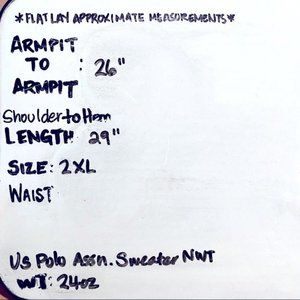 *FLAT LAY APPROXIMATE MEASUREMENTS*
ARMPIT
TO : 26"
ARMPIT
Shoulder to Hem
LENGTH 29"
SIZE: 2XL
WAIST
US Polo Assn. Sweater NWT
WT: 24oz